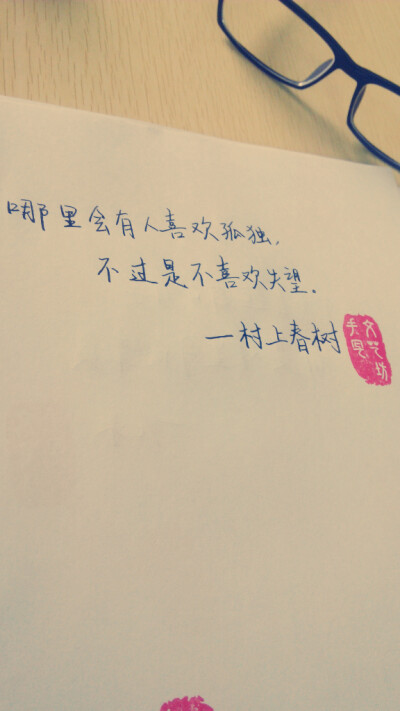 哪里会有人喜欢孤独,
不过是不喜欢失望.
—村上春树
文艺坊
手写